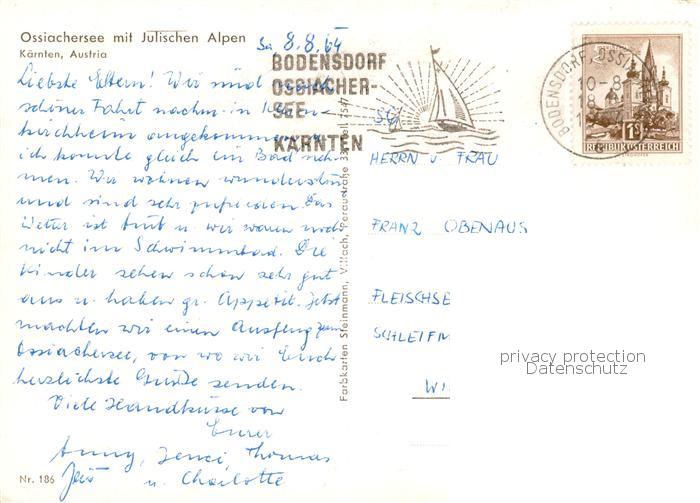 Ossiachersee mit Julischen Alpen
Kärnten, Austria
Sa, 8.8.64
Liebste Eltern! Wir sind nach
schöner Fahrt nachm. in
kirchheim angekommen
ich konnte gleich ein Bad neh-
men. Wir wohnen wunderschön
und sind sehr zufrieden. Das
Wetter ist trüb u. wir waren noch
nicht im Schwimmbad. Die
Kinder sehen schon sehr gut
aus u. haben gr. Appetit. Jetzt
machten wir einen Ausflug zum
Ossiachersee, von wo wir Euch
herzlichste Grüße senden.
Viele Handküsse von
Eurer
Anny, Thomas
u. Charlotte
Nr. 186
Farbkarten Steinmann, Villach, Peraustraße 33, Tel. 7547
BODENSDORF
OSSIACHER-
SEE
KÄRNTEN
BODENSDORF, OSSI
10-8
18
REPUBLIK ÖSTERREICH
S.G.
HERRN u. FRAU
FRANZ OBENAUS
FLEISCHSE
SCHLEIFM
WI
privacy protection
Datenschutz